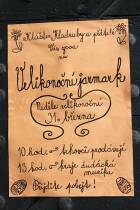 Klášter Kladruby a přátelé
Vás zvou
na
Velikonoční jarmark
Neděle velikonoční
31. března
10. hod. trhovci prodávají
13. hod. hraje dudácká
muzika
Přijďte pobejt!